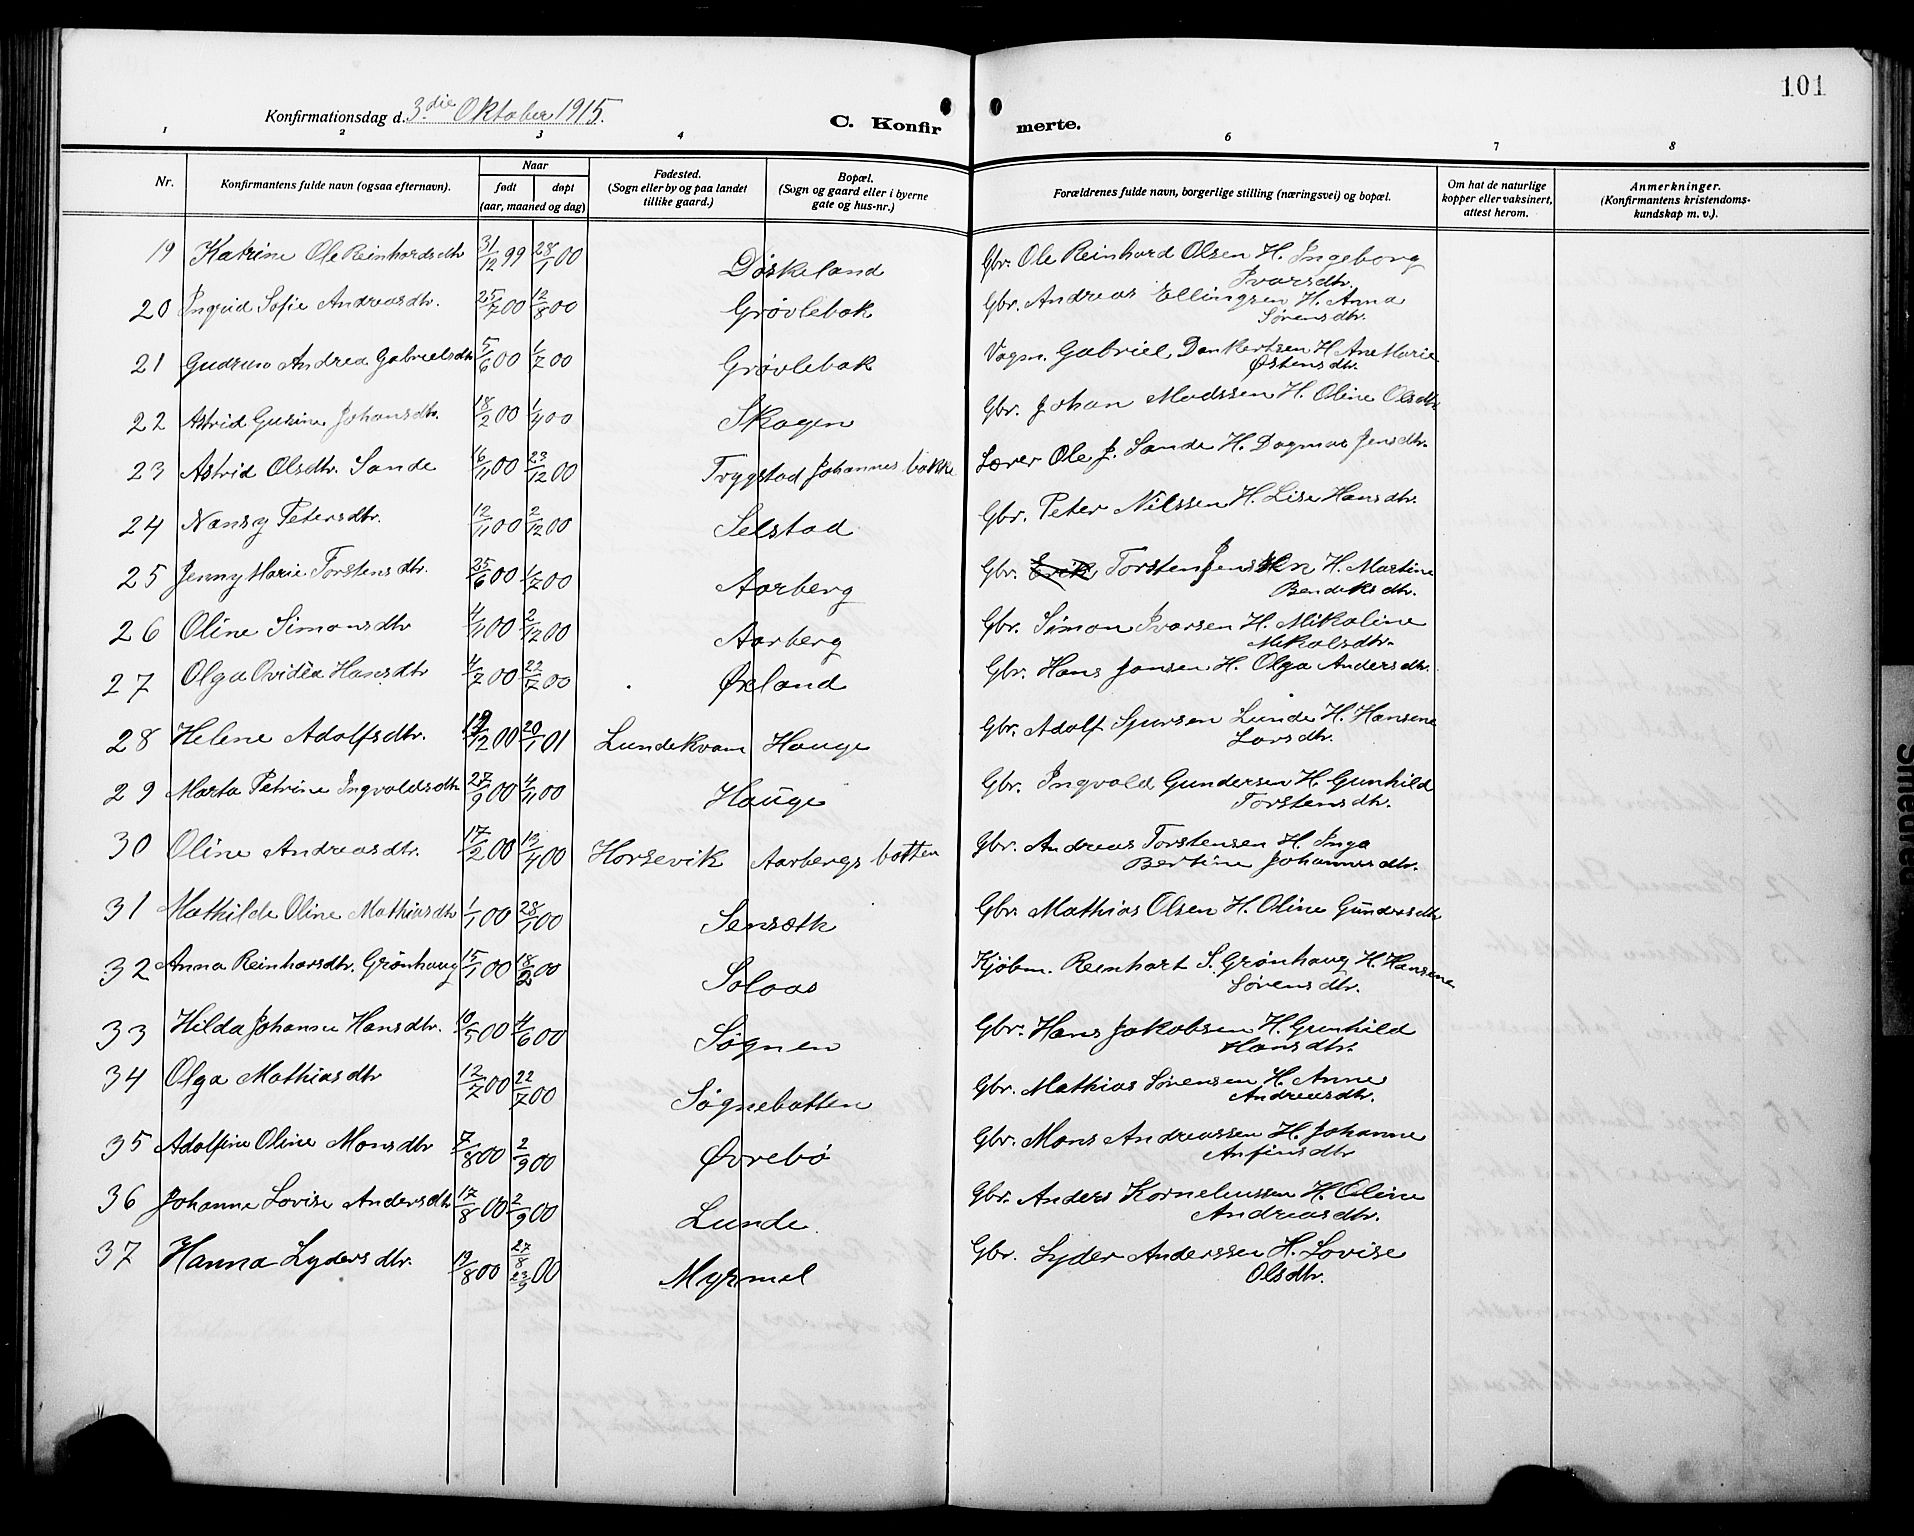 101
Konfirmationsdag d. 3die Oktober 1915.
C. Konfirmerte.
1 2 3 4 6 7 8
Nr. Konfirmantens fulde navn (ogsaa efternavn). Naar født døpt (aar, maaned og dag) Fødested. (Sogn eller by og paa landet tillike gaard.) Bopæl. (Sogn og gaard eller i byerne gate og hus-nr.) Forældrenes fulde navn, borgerlige stilling (næringsvei) og bopæl. Om hat de naturlige kopper eller vaksinert, attest herom. Anmerkninger. (Konfirmantens kristendoms-kundskap m. v.).
19 Katrine Ole Reinhardsdtr 31/12 99 28/1 00 Døskeland Gbr. Ole Reinhard Olsen H. Ingeborg Ivarsdtr.
20 Ingrid Sofie Andreasdtr. 25/7 00 12/8 00 Grøvlebak Gbr. Andreas Ellingsen H. Anna Sørensdtr.
21 Gudrun Andrea Gabrielsdtr 5/6 00 1/7 00 Grøvlebak Vogm. Gabriel Dankertsen H. Ane Marie Østensdtr.
22 Astrid Gurine Johansdtr. 18/2 00 1/4 00 Skogen Gbr. Johan Madssen H. Oline Olsdtr
23 Astrid Olsdtr. Sande 16/11 00 23/12 00 Trygstad Johannes bakke Lærer Ole J. Sande H. Dagmar Jensdtr.
24 Nansy Petersdtr. 12/11 00 2/12 00 Selstad Gbr. Peter Nilssen H. Lise Hansdtr.
25 Jenny Marie Torstensdtr. 25/6 00 1/7 00 Aarberg Gbr. Torsten Jensen H. Martine Bendiksdtr.
26 Oline Simonsdtr 4/11 00 2/12 00 Aarberg Gbr. Simon Ivarsen H. Mikaline Mikalsdtr.
27 Olga Ovidia Hansdtr 4/7 00 22/7 00 Øxland Gbr. Hans Jonsen H. Olga Andersdtr.
28 Helene Adolfsdtr. 19/12 00 20/1 01 Lundekvam Hauge Gbr. Adolf Sjursen Lunde H. Hansene Larsdtr.
29 Marta Petrine Ingvaldsdtr 27/9 00 4/11 00 Hauge Gbr. Ingvald Gundersen H. Gunhild Torstensdtr.
30 Oline Andreasdtr. 17/2 00 13/4 00 Horsevik Aarbergs botten Gbr. Andreas Torstensen H. Inga Bertine Johannesdtr.
31 Mathilde Oline Mathiasdtr 1/1 00 28/1 00 Senseth Gbr. Mathias Olsen H. Oline Gundersdtr
32 Anna Reinharsdtr. Grønhaug 15/1 00 18/2 00 Solaas Kjøbm. Reinhart S. Grønhaug H. Hansine Sørensdtr.
33 Hilda Johanne Hansdtr. 10/5 00 4/6 00 Søgnen Gbr. Hans Jakobsen H. Gunhild Hansdtr.
34 Olga Mathiasdtr 12/7 00 22/7 00 Søgnebotten Gbr. Mathias Sørensen H. Anne Andreasdtr.
35 Adolfine Oline Monsdtr 7/8 00 2/9 00 Øvrebø Gbr. Mons Andreassen H. Johanne Anfinsdtr
36 Johanne Lovise Andersdtr 17/8 00 2/9 00 Lunde. Gbr. Anders Korneliussen H. Oline Andreasdtr.
37 Hanna Lydersdtr. 19/8 00 27/8 23/9 00 Myrmel Gbr. Lyder Anderssen H. Lovise Olsdtr.